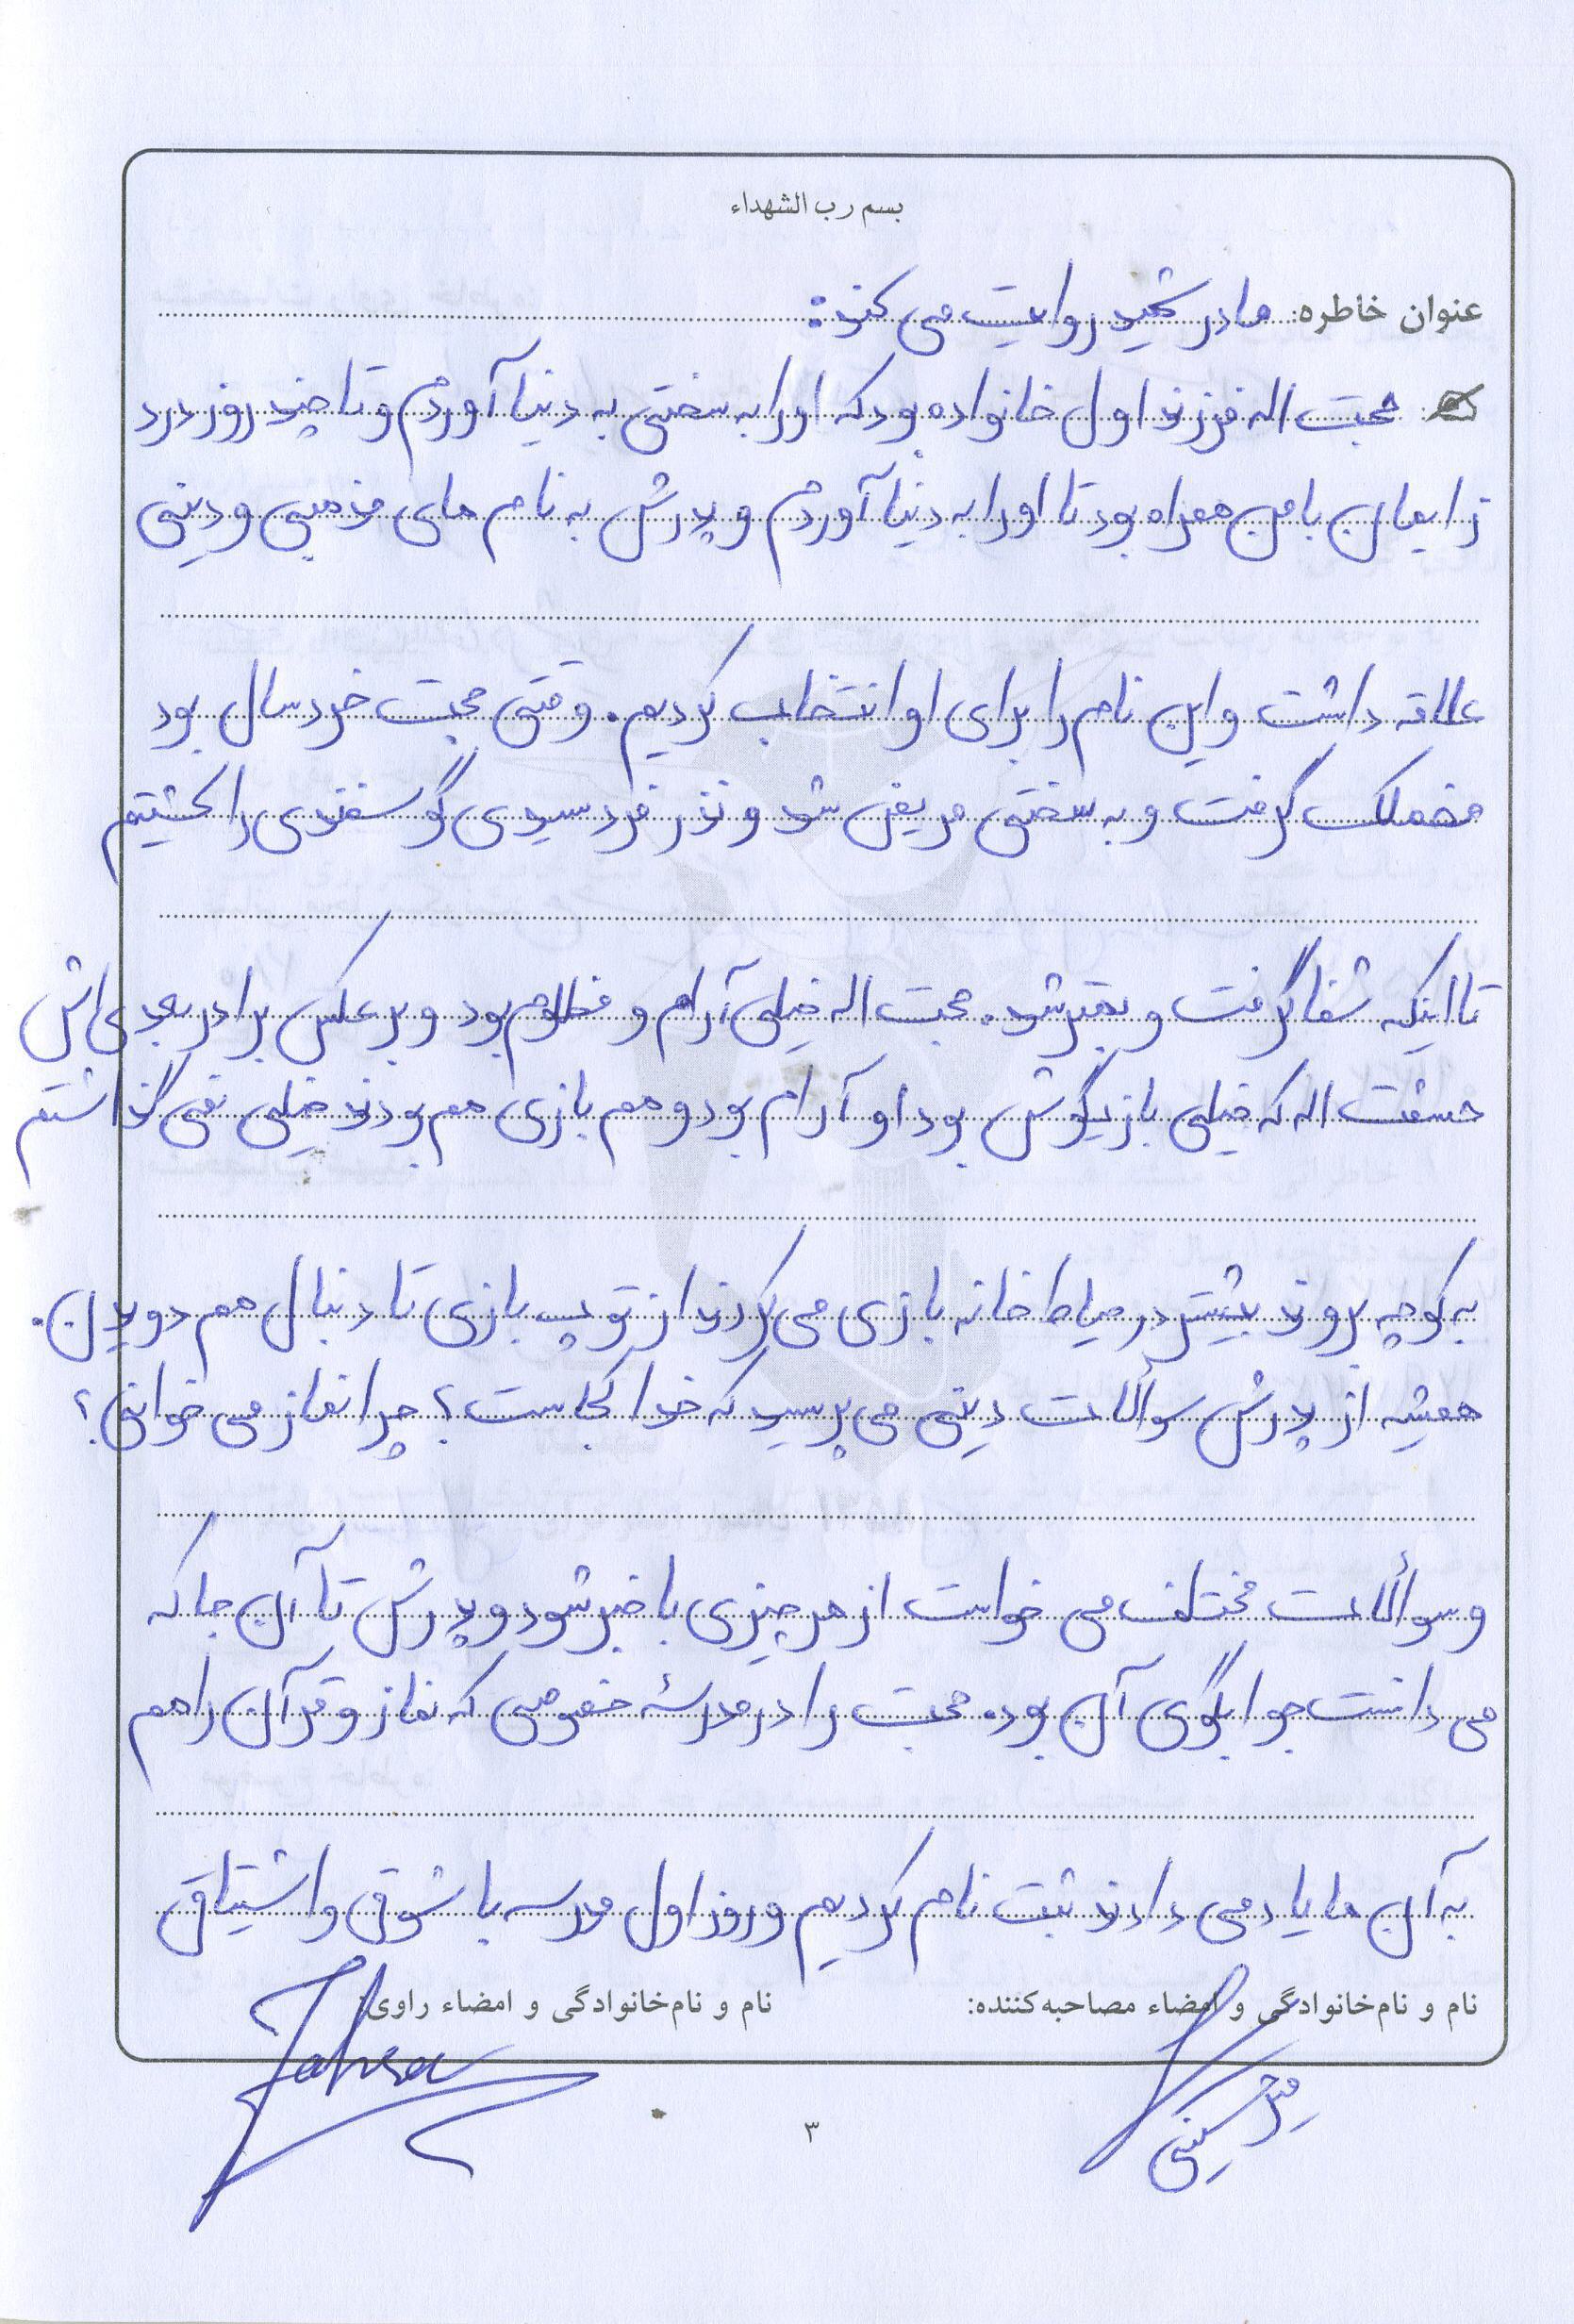 بسم رب الشهداء
عنوان خاطره: مادر شهید روایت می کند:
محبت اله فرزند اول خانواده بود که او را به سختی به دنیا آوردم و تا چند روز درد
زایمان با من همراه بود تا او را به دنیا آوردم و پدرش به نام های مذهبی و دینی
علاقه داشت و این نام را برای او انتخاب کردیم. وقتی محبت خردسال بود
مخملک گرفت و به سختی مریض شد و نذر فرد سیدی گوسفندی را کشتیم
تا اینکه شفا گرفت و بهتر شد. محبت اله خیلی آرام و مظلوم بود و برعکس برادر بعدی اش
حشمت اله که خیلی بازیگوش بود او آرام بود و هم بازی هم بودند خیلی نمی گذاشتم
به کوچه بروند بیشتر در حیاط خانه بازی می کردند از توپ بازی تا دنبال هم دویدن.
همیشه از پدرش سوألات دینی می پرسید که خدا کجاست؟ چرا نماز می خوانی؟
و سوألات مختلف می خواست از هر چیزی با خبر شود و پدرش تا آن جا که
می دانست جوابگوی آن بود. محبت را در مدرسۀ خصوصی که نماز و قرآن را هم
به آن ها یاد می دادند ثبت نام کردیم و روز اول مدرسه با شوق و اشتیاق
نام و نام‌خانوادگی و امضاء مصاحبه‌کننده:
نام و نام‌خانوادگی و امضاء راوی:
۳